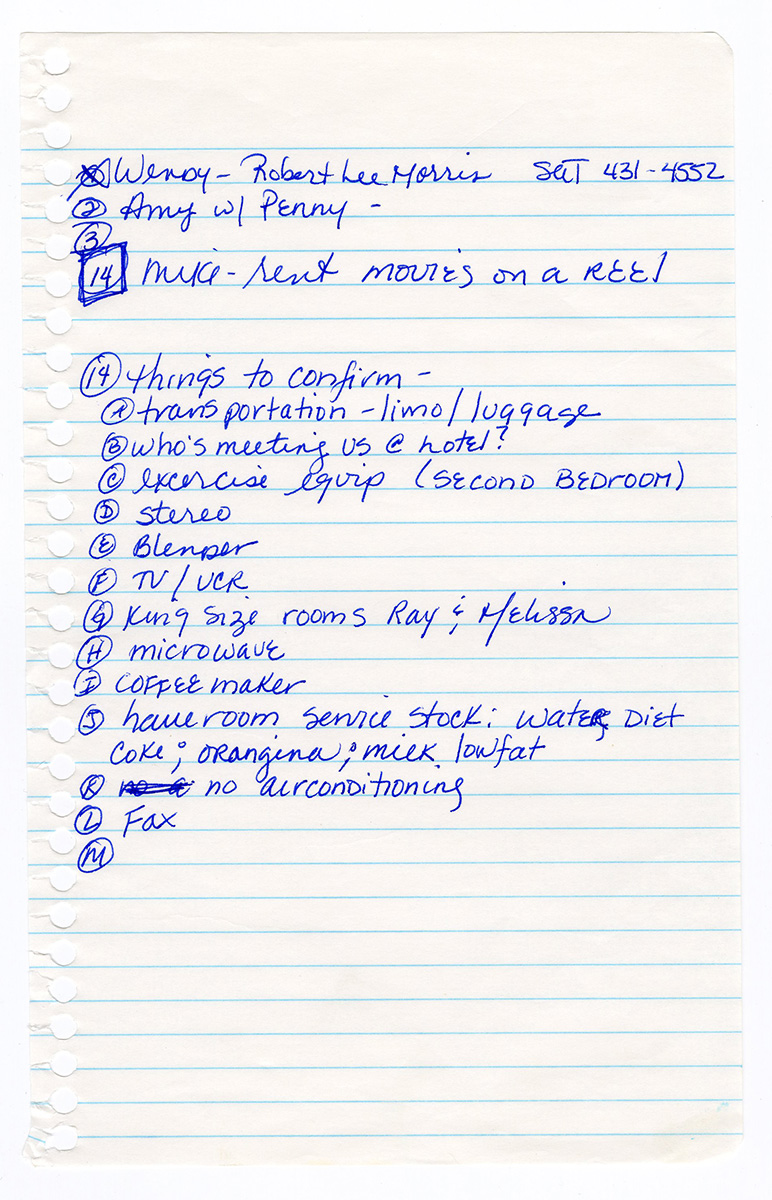 ① Wendy - Robert Lee Morris Sat 431-4552
② Amy w/ Penny -
③
14 Mike - rent movies on a REEl
⑭ things to confirm -
Ⓐ transportation - limo/luggage
Ⓑ who's meeting us @ hotel?
Ⓒ excercise equip (SECOND BEDROOM)
Ⓓ stereo
Ⓔ Blender
Ⓕ TV/VCR
Ⓖ King size rooms Ray & Melissa
Ⓗ microwave
Ⓘ COFFEE maker
Ⓙ have room service stock: water, Diet
Coke; orangina; milk lowfat
Ⓚ no airconditioning
Ⓛ Fax
Ⓜ